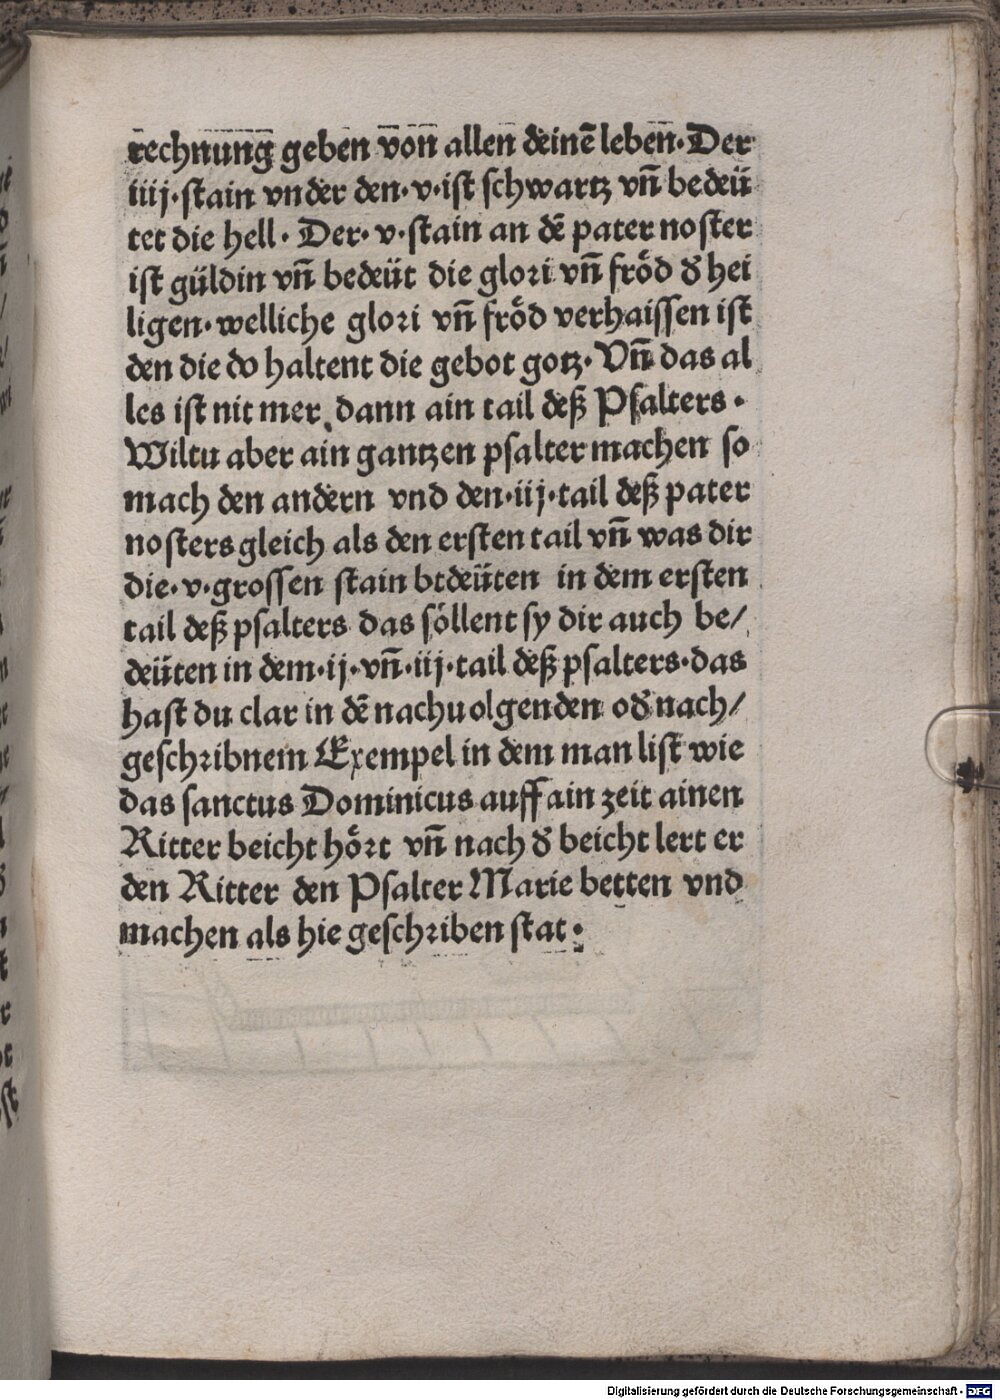 rechnung geben von allen deinē leben· Der
iiij·stain vnder den·v·ist schwartz vn̄ bedeü
tet die hell· Der·v·stain an dē pater noster
ist güldin vn̄ bedeüt die glori vn̄ fröd đ hei
ligen·welliche glori vn̄ fröd verhaissen ist
den die do haltent die gebot gotz· Vn̄ das al
les ist nit mer dann ain tail deß Psalters·
Wiltu aber ain gantzen psalter machen so
mach den andern vnd den·iij·tail deß pater
nosters gleich als den ersten tail vn̄ was dir
die·v·grossen stain btdeüten in dem ersten
tail deß psalters das söllent sy dir auch be/
deüten in dem·ij·vn̄·iij·tail deß psalters·das
hast du clar in dē nachuolgenden ođ nach/
geschribnem Exempel in dem man list wie
das sanctus Dominicus auff ain zeit ainen
Ritter beicht hört vn̄ nach đ beicht lert er
den Ritter den Psalter Marie betten vnd
machen als hie geschriben stat·
Digitalisierung gefördert durch die Deutsche Forschungsgemeinschaft - DFG